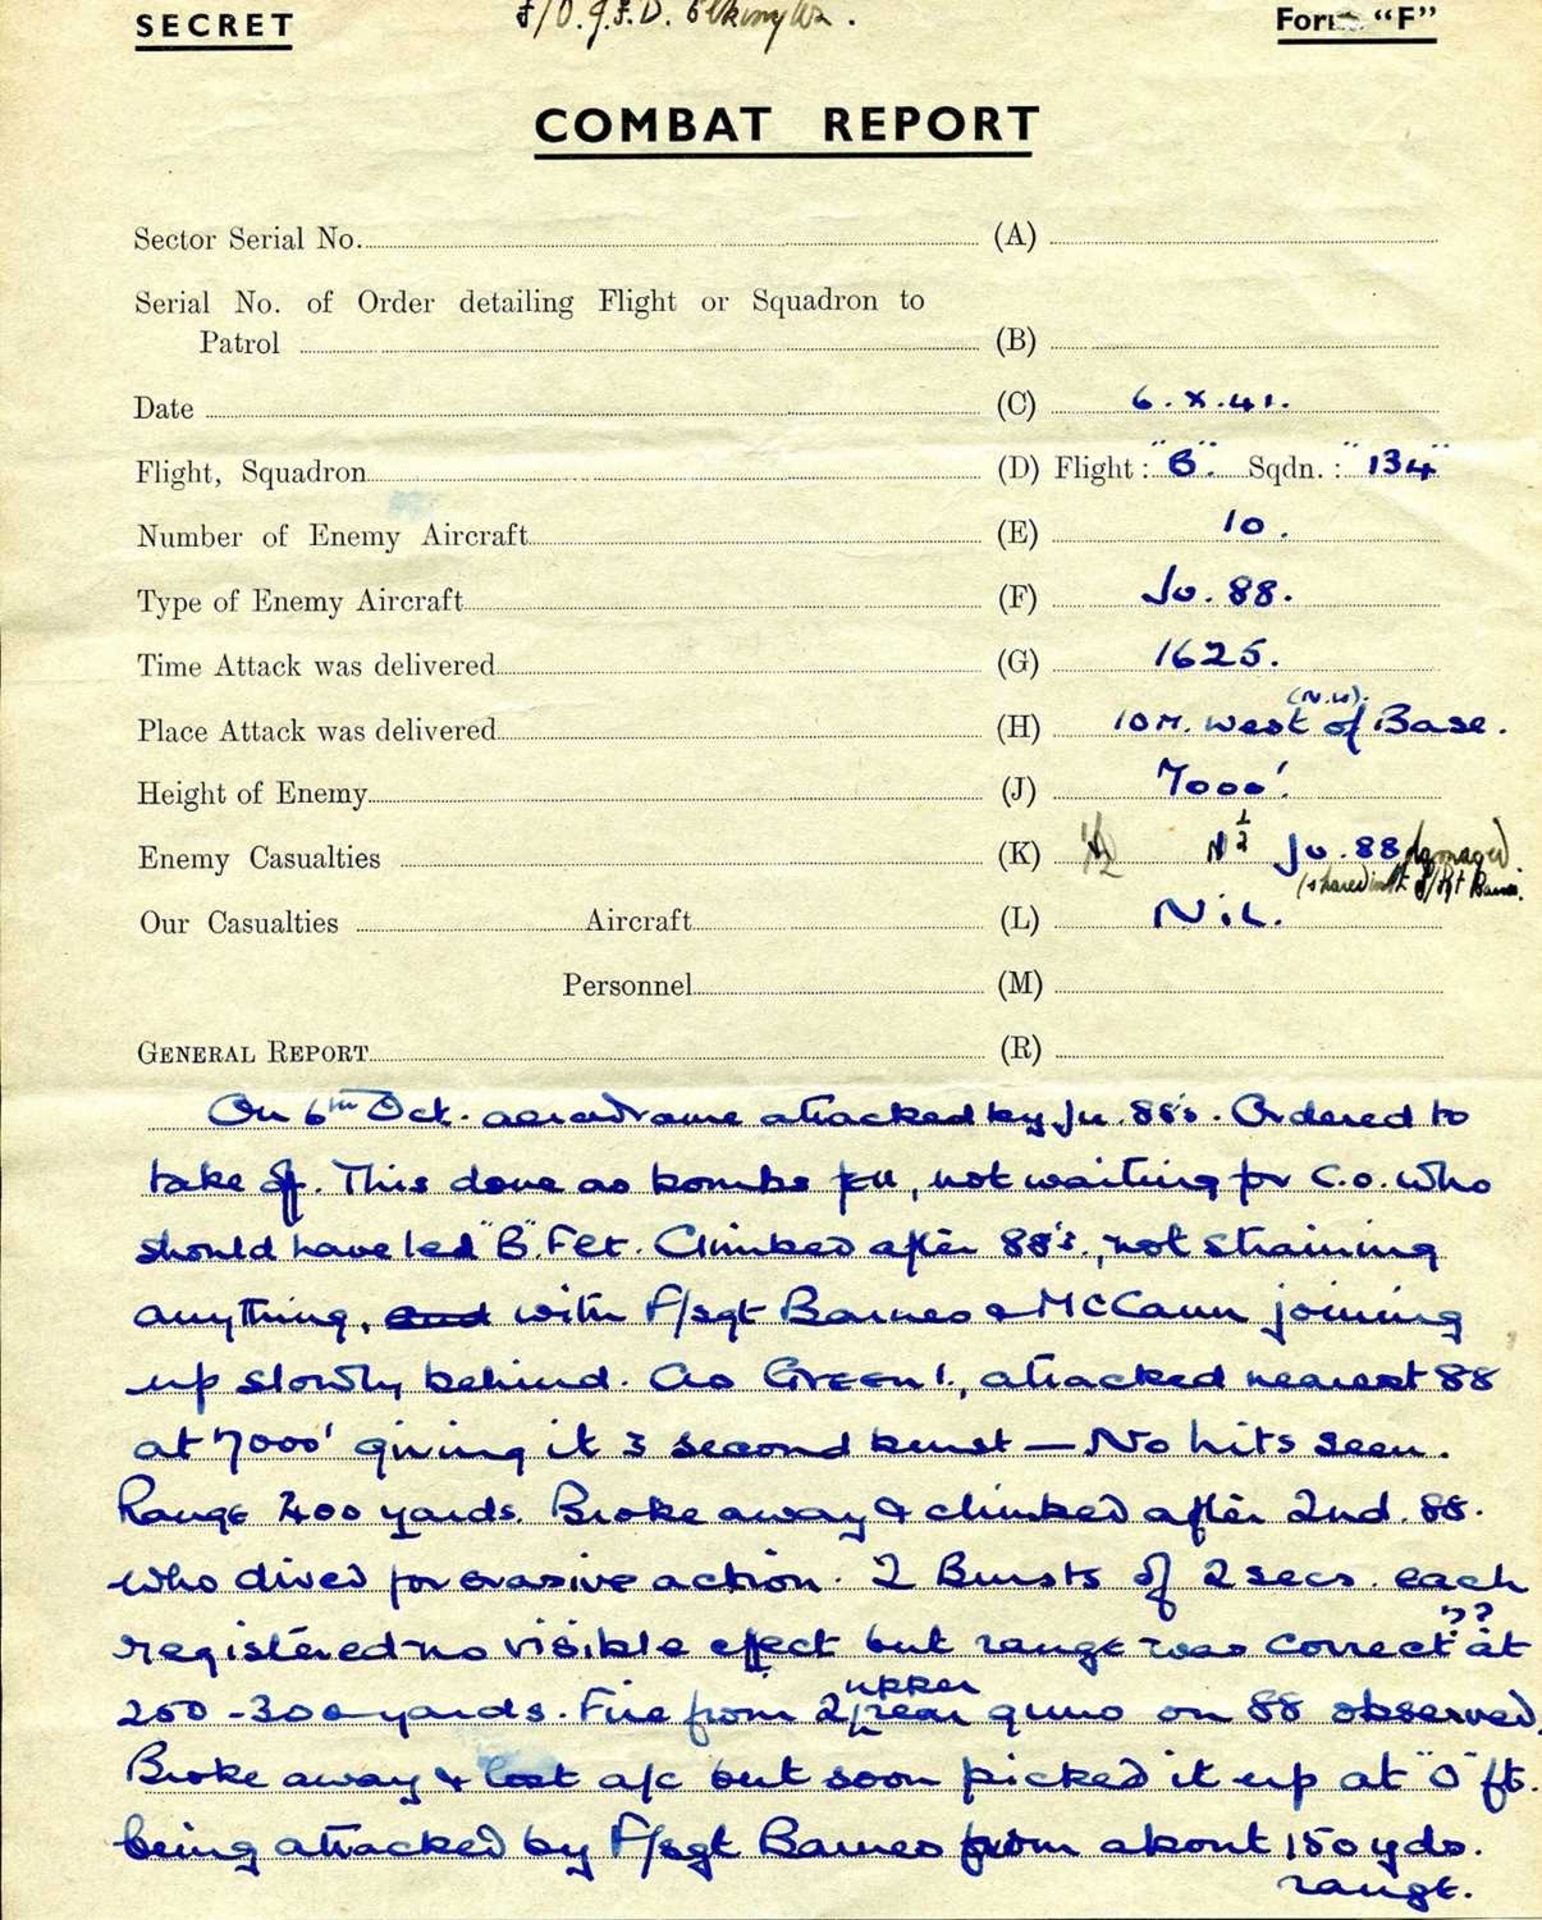 SECRET F/O. J.F.D. Elkington. Form "F"
COMBAT REPORT
Sector Serial No. (A)
Serial No. of Order detailing Flight or Squadron to
Patrol (B)
Date (C) 6.X.41.
Flight, Squadron (D) Flight : "B". Sqdn. : "134"
Number of Enemy Aircraft (E) 10.
Type of Enemy Aircraft (F) Ju. 88.
Time Attack was delivered (G) 1625.
(N.W).
Place Attack was delivered (H) 10 M. West of Base.
Height of Enemy (J) 7000'.
Enemy Casualties (K) 1/2 1/2 Ju. 88 damaged
(shared with F/Sgt Barnes.
Our Casualties Aircraft (L) NIL.
Personnel (M)
GENERAL REPORT (R)
On 6th Oct. aerodrome attacked by Ju. 88's. Ordered to
take off. This done as bombs fell, not waiting for C.O. who
should have led "B". Flt. Climbed after 88's., not straining
anything, and with F/sgt Barnes & McCann joining
up slowly behind. As Green 1., attacked nearest 88
at 7000' giving it 3 second burst — No hits seen.
Range 400 yards. Broke away & climbed after 2nd. 88.
who dived for evasive action. 2 Bursts of 2 secs. each
registered no visible effect but range was correct ?? at
250-300 yards. Fire from 2 upper rear guns on 88 observed.
Broke away & lost a/c but soon picked it up at "0" ft.
being attacked by F/sgt Barnes from about 150 yds.
range.